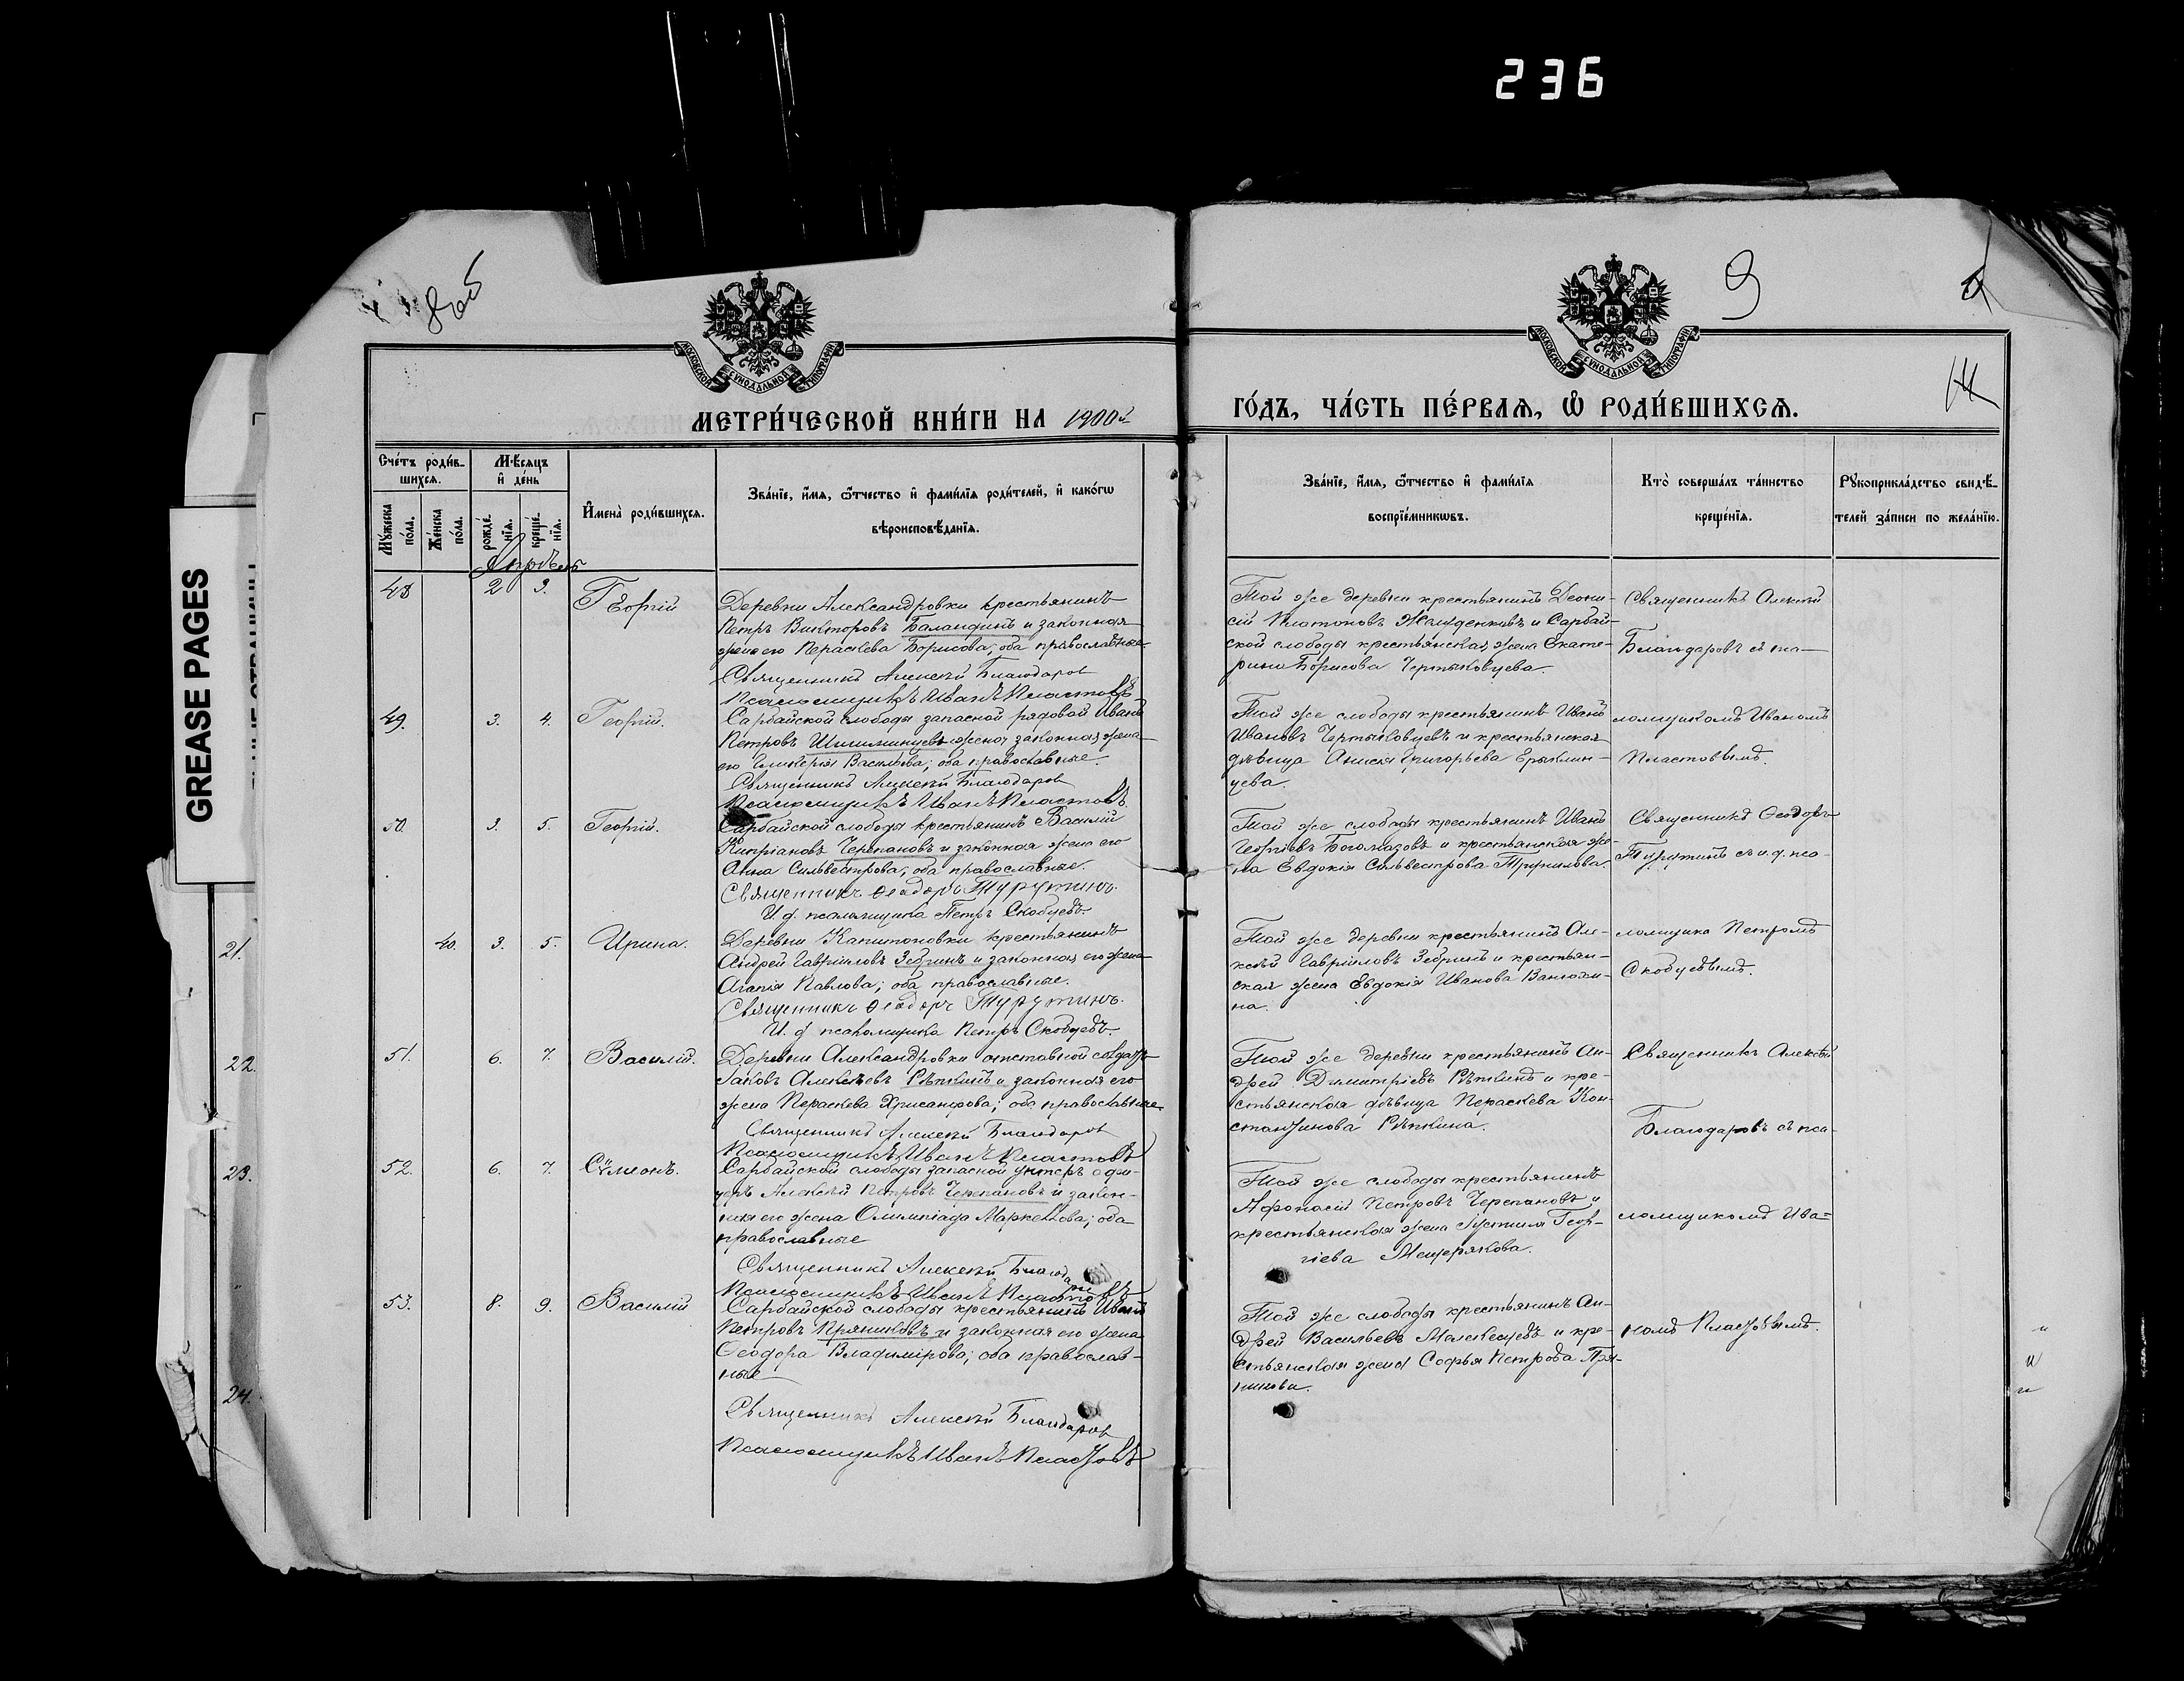 236
GREASE PAGES
8 об
9
МОСКОВСКОЙ СУНОДАЛЬНОЙ ТИПОГРАФІИ
МОСКОВСКОЙ СУНОДАЛЬНОЙ ТИПОГРАФІИ
МЕТРИ́ЧЕСКОЙ КНИ́ГИ НА 1900й
ГО́ДЪ, ЧА́СТЬ ПЕ́РВАѦ, Ѡ҆ РОДИ́ВШИХСѦ.
Сче́тъ роди́в-
шихся.
Мѣ́сяцъ
и҆ де́нь
Мꙋ́жеска по́ла.
Же́нска по́ла.
рожде́нїѧ.
креще́нїѧ.
И҆мена̀ роди́вшихся.
Зва́нїе, и҆́мѧ, ѻ҆́тчество и҆ фами́лїѧ роди́телей, и҆ како́гѡ
вѣроисповѣ́данїѧ.
Зва́нїе, и҆́мѧ, ѻ҆́тчество и҆ фами́лїѧ
воспрїе́мникѡвъ.
Кто̀ соверша́лъ та́инство
креще́нїѧ.
Рꙋкоприкла́дство свидѣ́-
телей за́писи по жела́нїю.
Апрѣль
48 2 3. Георгій
Деревни Александровки крестьянинъ
Петръ Викторовъ Баландинъ и законная
жена его Параскева Борисова; оба православные
Священникъ Алексѣй Благодаров
Псаломщикъ Иванъ Пластовъ
Той же деревни крестьянинъ Діони-
сій Платоновъ и Сарбай-
ской слободы крестьянская жена Екате-
рина Борисова Чертыковцева.
Священникъ Алексѣй
Благодаровъ съ пса-
49. 3. 4. Георгій.
Сарбайской слободы запасной рядовой Иванъ
Петровъ Шишминцевъ законная жена
его Гликерія Васильева; оба православные.
Священникъ Алексѣй Благодаров
Псаломщикъ Иванъ Пластовъ.
Той же слободы крестьянинъ Иванъ
Ивановъ Чертыковцевъ и крестьянская
дѣвица Анисія Григорьева Ерыклин-
цева.
ломщикомъ Иваномъ
Пластовымъ.
50. 3. 5. Георгій.
Сарбайской слободы крестьянинъ Василій
Кипріановъ Черепановъ и законная жена его
Анна Сильвестрова; оба православные.
Священникъ Ѳеодоръ Турутинъ.
И. д. псаломщика Петръ Скобцевъ.
Той же слободы крестьянинъ Иванъ
Георгіевъ Богомазовъ и крестьянская же-
на Евдокія Сильвестрова
Священникъ Ѳеодоръ
Турутинъ съ и. д. пса-
40. 3. 5. Ирина.
Деревни Капитоновки крестьянинъ
Андрей Гавріиловъ Зебринъ и законная его жена
Агапія Павлова; оба православные.
Священникъ Ѳеодоръ Турутинъ.
И. д. псаломщика Петръ Скобцевъ.
Той же деревни крестьянинъ Але-
ксѣй Гавріиловъ Зебринъ и крестьян-
ская жена Евдокія Иванова
на.
ломщика Петромъ
Скобцевымъ.
51. 6. 7. Василій.
Деревни Александровки отставной солдатъ
Іаковъ Алексѣевъ Рѣпкинъ и законная его
жена Параскева Хрисанфова; оба православные
Священникъ Алексѣй Благодаров
Псаломщикъ Иванъ Пластовъ
Той же деревни крестьянинъ Ан-
дрей Димитріевъ Рѣпкинъ и кре-
стьянская дѣвица Параскева Кон-
стантинова Рѣпкина.
Священникъ Алексѣй
Благодаровъ съ пса-
52. 6. 7. Сѵмеонъ.
Сарбайской слободы запасной унтеръ офи-
церъ Алексѣй Петровъ Черепановъ и закон-
ная его жена Олимпіада Маркеллова; оба
православные
Священникъ Алексѣй Благодаров
Псаломщикъ Иванъ Пластовъ
Той же слободы крестьянинъ
Афонасій Петровъ Черепановъ и
крестьянская жена Іустина Геор-
гіева Мещерякова.
ломщикомъ Ива=
53. 8. 9. Василій
Сарбайской слободы крестьянинъ Иванъ
Петровъ Пряниковъ и законная его жена
Ѳеодора Владимірова; оба православ-
ные
Священникъ Алексѣй Благодаров
Псаломщикъ Иванъ Пластовъ
Той же слободы крестьянинъ Ан-
дрей Васильевъ и кре-
стьянская жена Софья Петрова Пря-
никова.
номъ Пластовымъ.
21.
22.
23.
24.